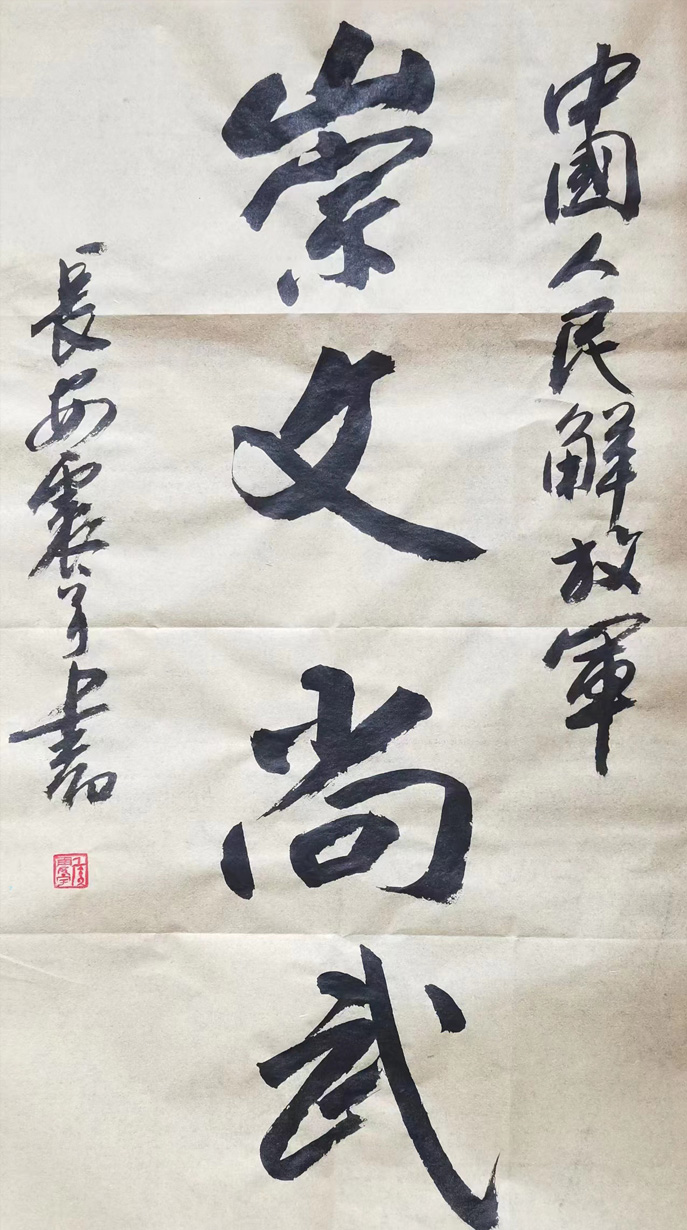 中國人民解放軍
崇文尚武
長安震亭書